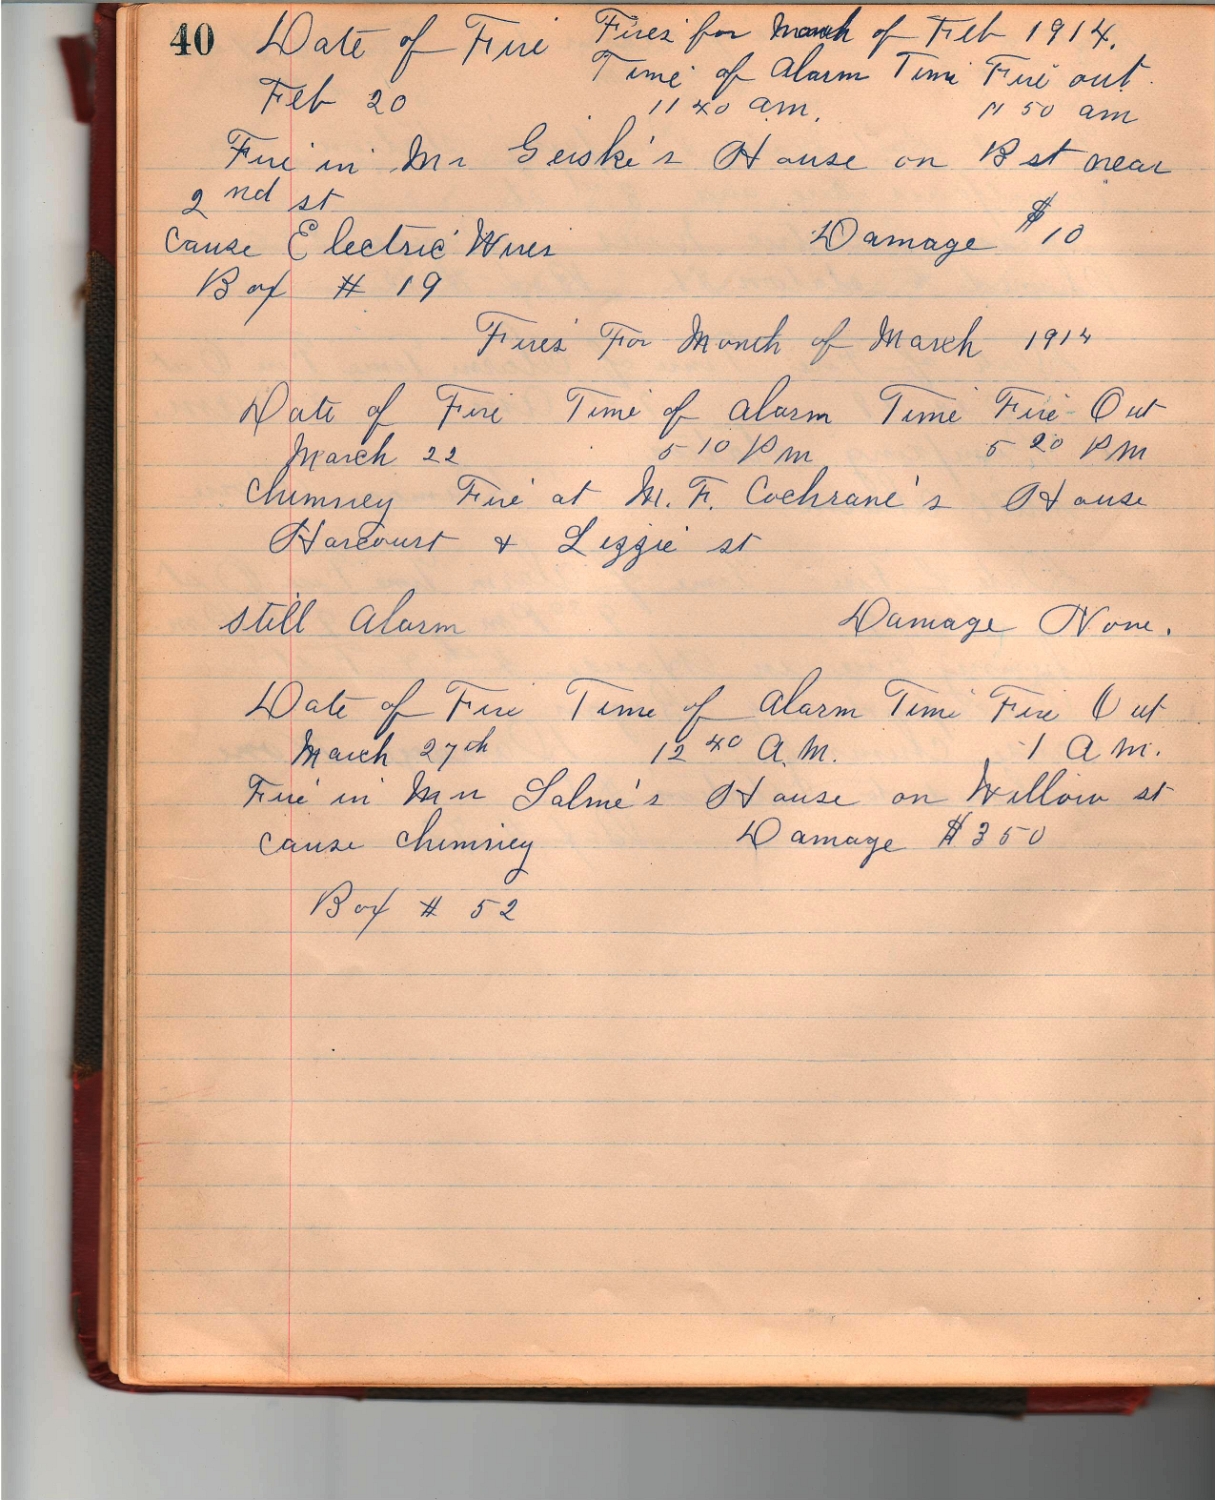 40 Date of Fire Fires for Month of Feb 1914.
Time of Alarm Time Fire out.
Feb 20 11 40 am. 11 50 am
Fire in Mr Geiske's House on B st near
2nd st
Cause Electric Wires Damage $10
Box # 19
Fires For Month of March 1914
Date of Fire Time of Alarm Time Fire Out
March 22 5 10 P m 5 20 P M
Chimney Fire at M. F. Cochrane's House
Harcourt & Lizzie st
Still Alarm Damage None.
Date of Fire Time of Alarm Time Fire Out
March 27th 12 40 A.M. 1 A M.
Fire in House on Willow st
Cause Chimney Damage $350
Box # 52